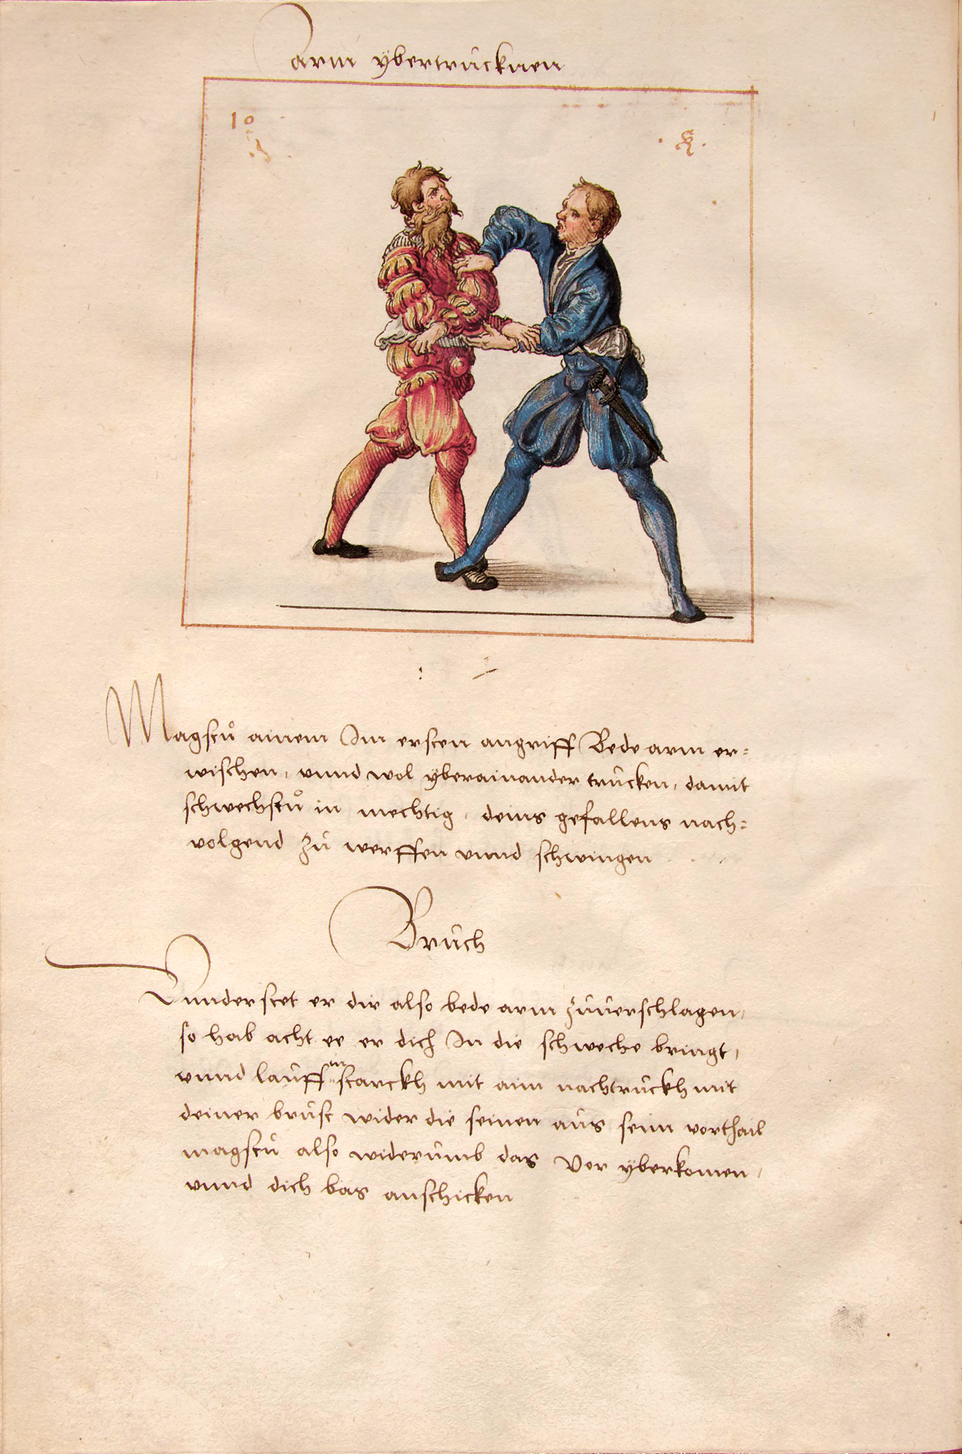 arm ybertrucknen
10
Magstu ainem Im ersten angriff Bede arm er=
wischen, vnnd wol yberainander trucken, damit
schwechstu in mechtig, deins gefallens nach=
volgend zu werffen vnnd schwingen
Bruch
Vnnderstet er dir also bede arm zuuerschlagen,
so hab acht ee er dich In die schweche bringt,
vnnd lauff im starckh mit aim nachtruckh mit
deiner brust wider die seinen aus seim vorthail
magstu also widerumb das Vor yberkomen,
vnnd dich bas anschicken